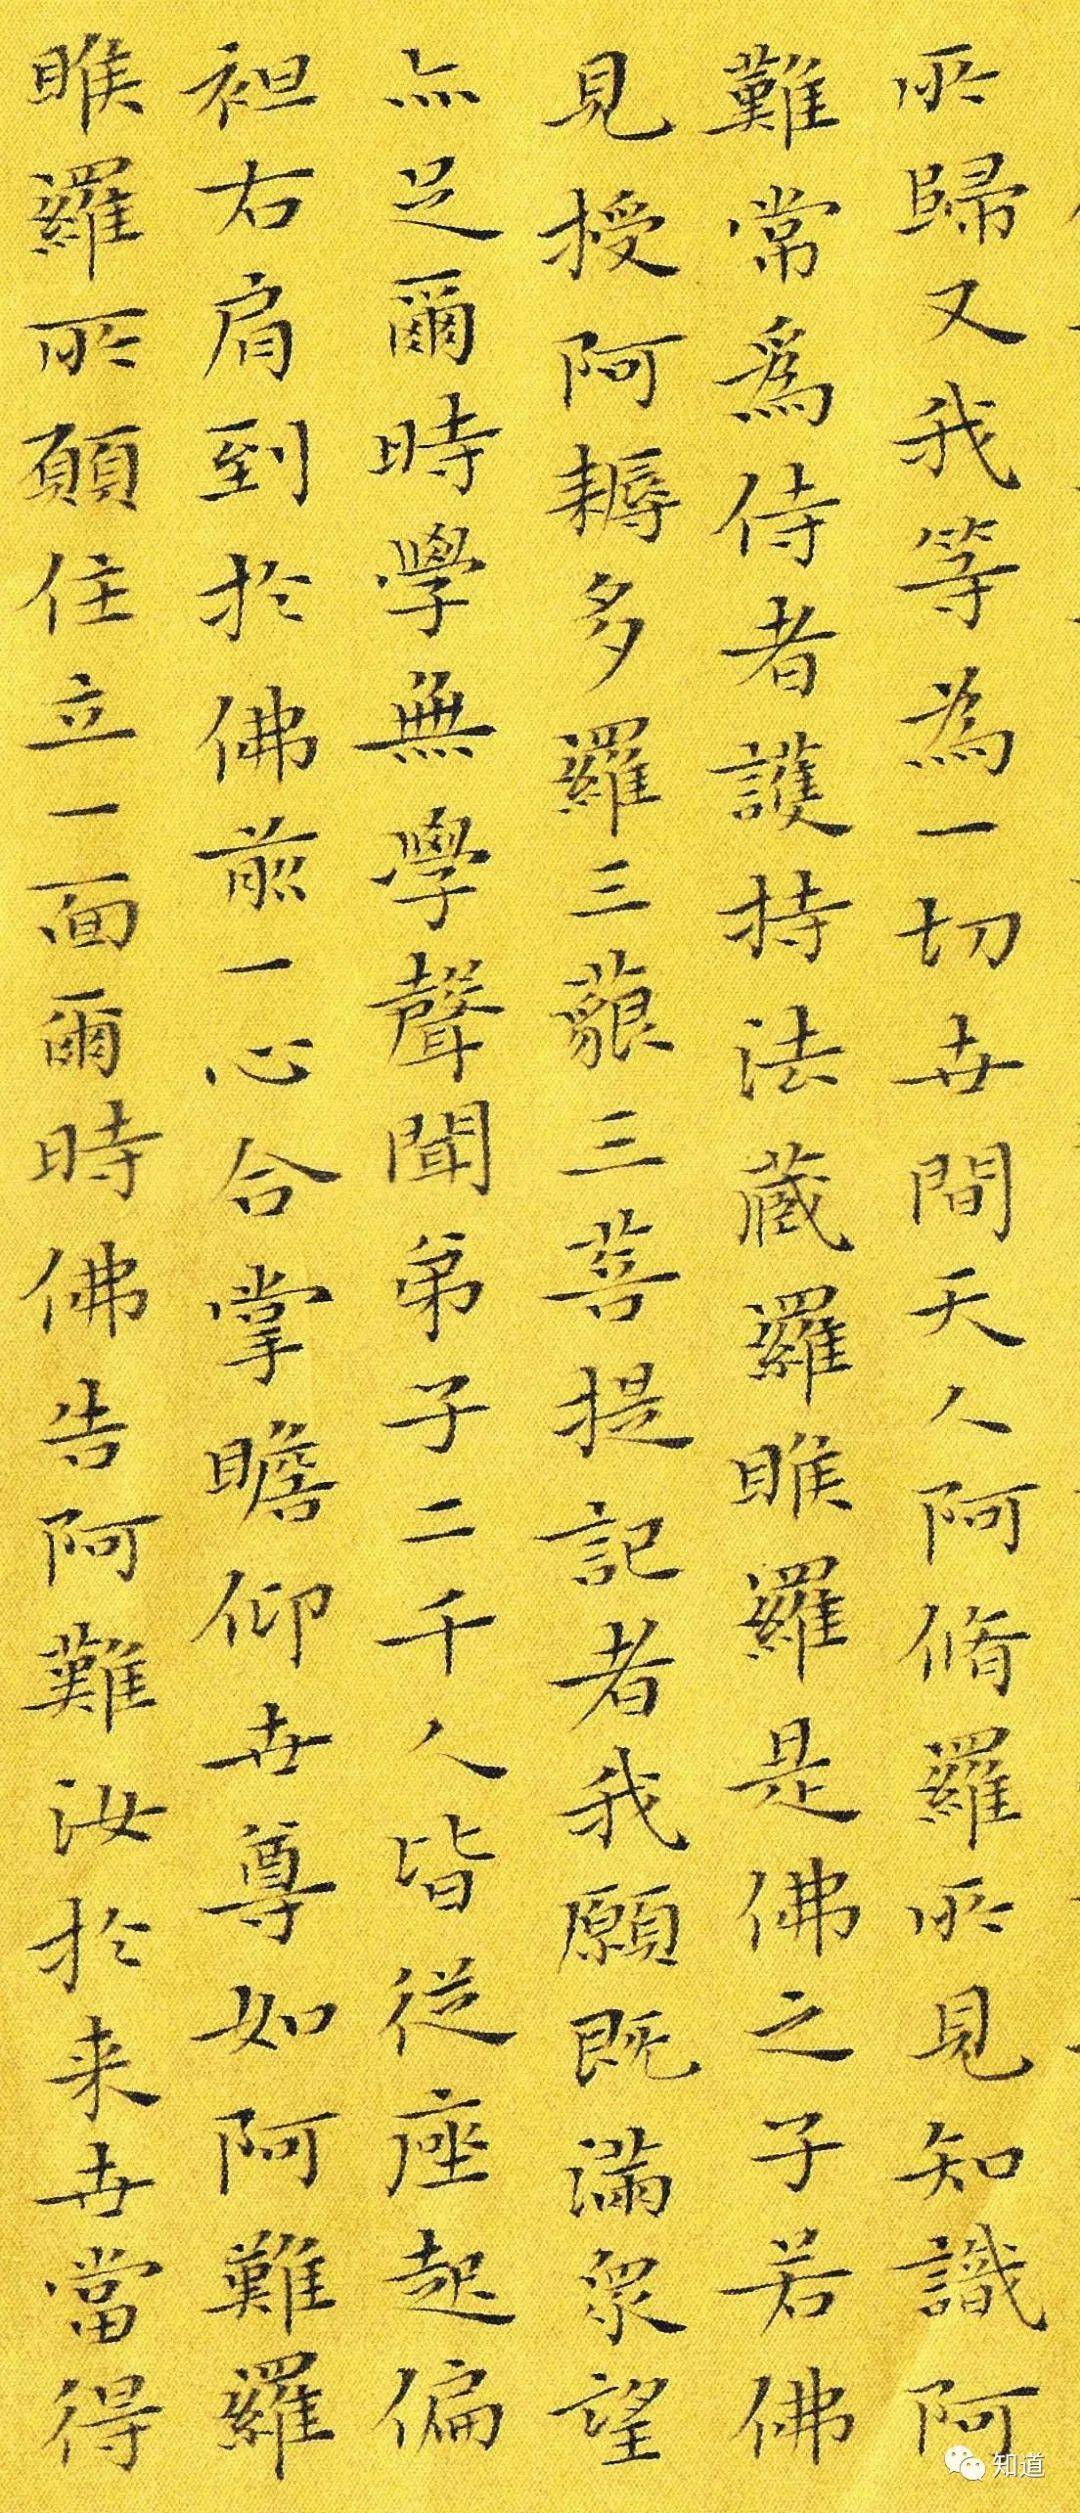 所歸又我等為一切世間天人阿脩羅所見知識阿
難常爲侍者護持法蔵羅睺羅是佛之子若佛
見授阿耨多羅三藐三菩提記者我願既滿衆望
亦足爾時學無學聲聞弟子二千人皆從座起偏
袒右肩到於佛前一心合掌瞻仰世尊如阿難羅
睺羅所願住立一面爾時佛告阿難汝於来世當得
知道